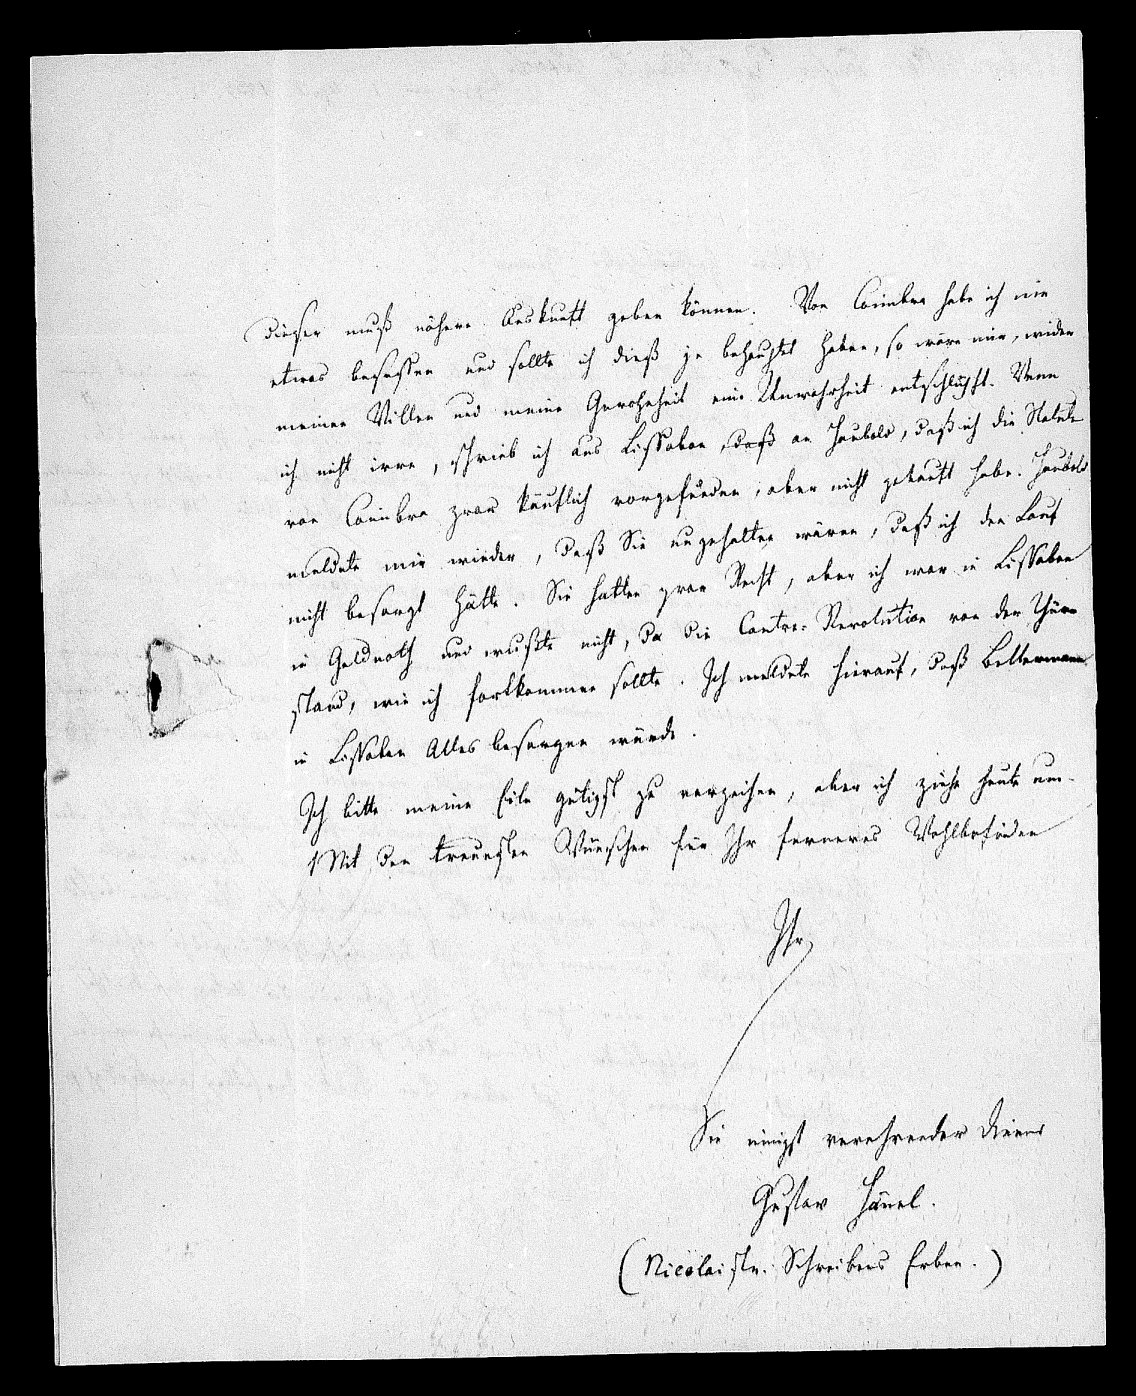 dieser muß nähere Auskunft geben können. Von Coimbra habe ich nie
etwas besessen und sollte ich dieß je behauptet haben, so wäre mir, wider
meinen Willen und meine Gewohnheit eine Unwahrheit entschlüpft. Wenn
ich nicht irre, schrieb ich aus Lissabon, daß an Haubold, daß ich die Statute
von Coimbra zwar käuflich vorgefunden, aber nicht gekauft habe. Haubold
meldete mir wieder, daß Sie ungehalten wären, daß ich den Kauf
nicht besorgt hätte. Sie hatten zwar Recht, aber ich war in Lissabon
in Geldnoth und wußte nicht, da die Contre-Revolution vor der Thüre
stand, wie ich fortkommen sollte. Ich meldete hierauf, daß Bellermann
in Lissabon Alles besorgen würde.
Ich bitte meine Eile gütigst zu verzeihen, aber ich ziehe heute um.
Mit den treuesten Wünschen für Ihr ferneres Wohlbefinden
Ihr
Sie innigst verehrender Diener
Gustav Hänel.
(Nicolaistr. Schreibers Erben.)